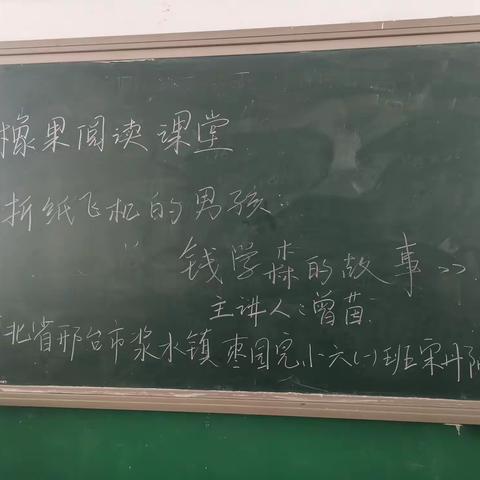 橡果阅读课堂
折纸飞机的男孩:
钱学森的故事>>.
主讲人:曾茵
北省邢台市浆水镇枣园完小六(一)班宋丹